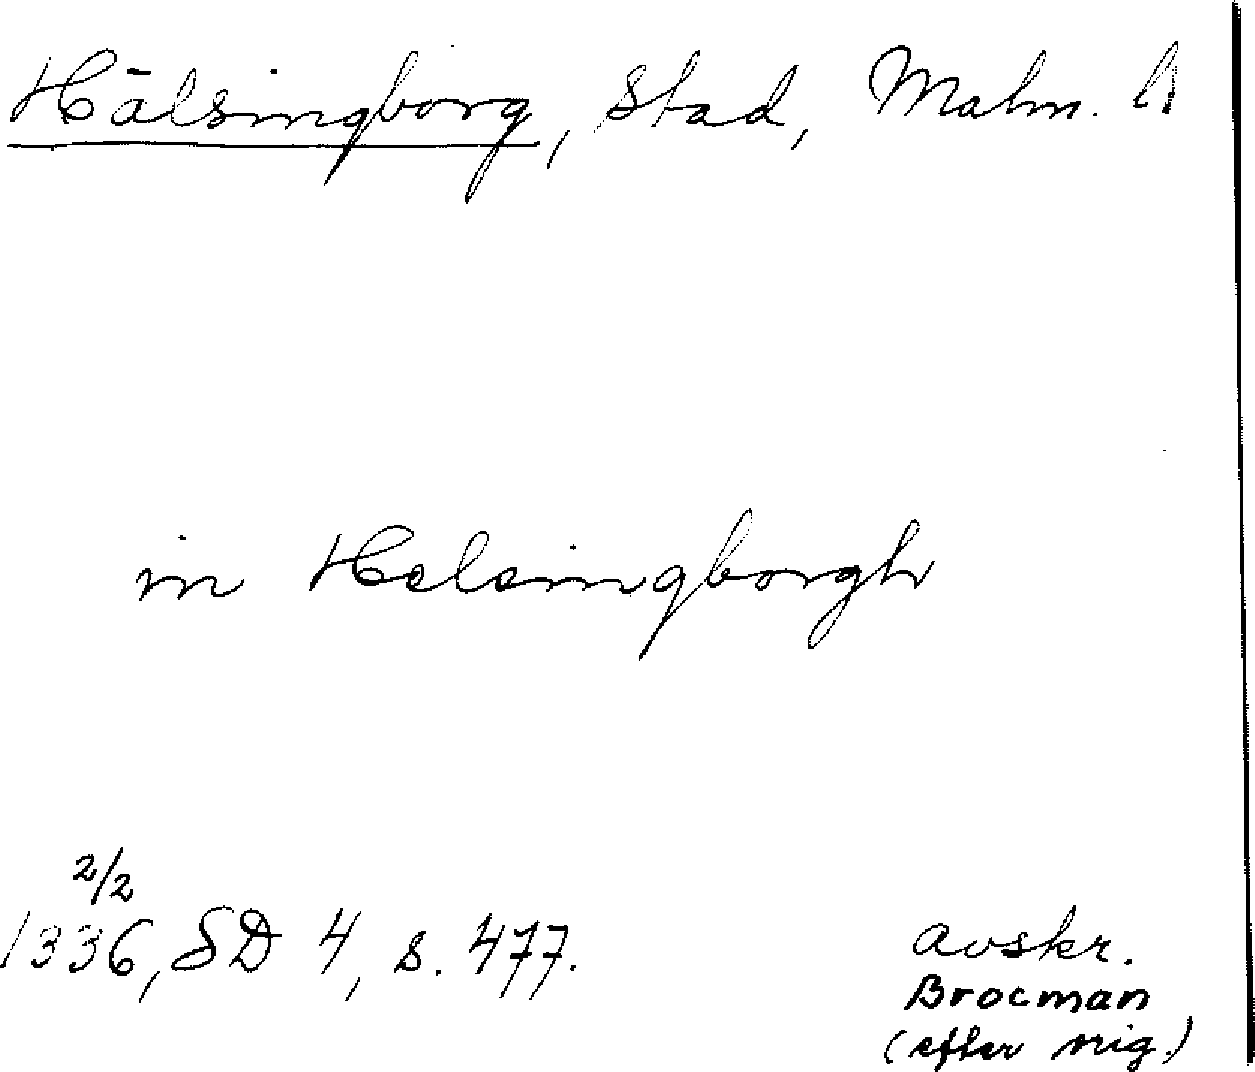 Hälsingborg, Stad, Malm. l
in Helsingborgh
2/2
1336, SD 4, s. 477.
avskr.
Brocman
(efter orig.)